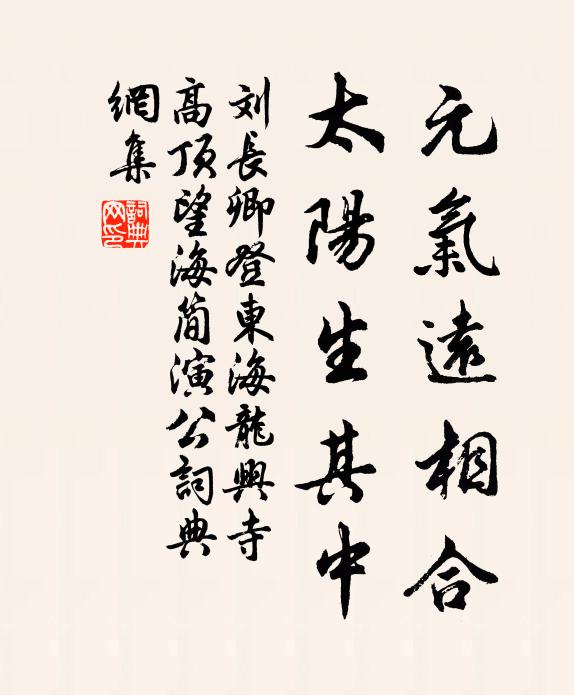 元氣遠相合
太陽生其中
刘長卿登東海龍興寺
高頂望海简演公詞典
網集
詞典
网印